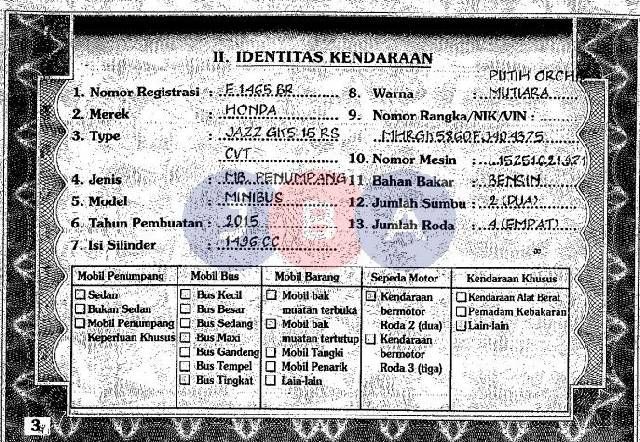 II. IDENTITAS KENDARAAN
1. Nomor Registrasi : E 1465 BR
2. Merek : HONDA
3. Type : JAZZ GK5 1.5 RS
CVT
4. Jenis : MB. PENUMPANG
5. Model : MINIBUS
6. Tahun Pembuatan : 2015
7. Isi Silinder : 1496 CC
PUTIH ORCHID
8. Warna : MUTIARA
9. Nomor Rangka/NIK/VIN :
10. Nomor Mesin :
11. Bahan Bakar : BENSIN
12. Jumlah Sumbu : 2 (DUA)
13. Jumlah Roda : 4 (EMPAT)
LBA
Mobil Penumpang
Sedan
Bukan Sedan
Mobil Penumpang
Keperluan Khusus
Mobil Bus
Bus Kecil
Bus Besar
Bus Sedang
Bus Maxi
Bus Gandeng
Bus Tempel
Bus Tingkat
Mobil Barang
Mobil bak
muatan terbuka
Mobil bak
muatan tertutup
Mobil Tangki
Mobil Penarik
Lain-lain
Sepeda Motor
Kendaraan
bermotor
Roda 2 (dua)
Kendaraan
bermotor
Roda 3 (tiga)
Kendaraan Khusus
Kendaraan Alat Berat
Pemadam Kebakaran
Lain-lain
3